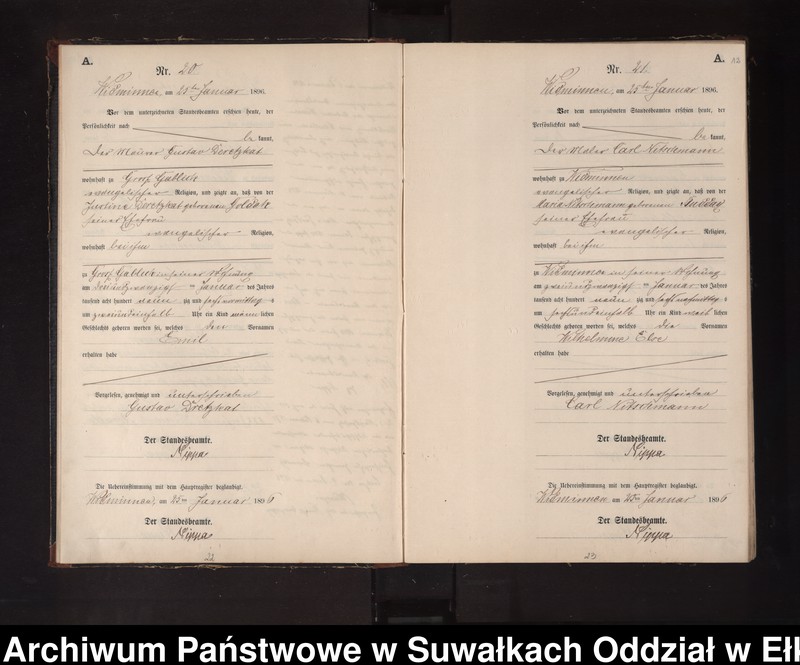 A.
Nr. 20.
Widminnen, am 25ten Januar 1896.
Vor dem unterzeichneten Standesbeamten erschien heute, der
Persönlichkeit nach
be kannt,
Der Maurer Gustav Dretzkat
wohnhaft zu Groß Gablick
evangelischer Religion, und zeigte an, daß von der
Justina Dretzkat geborenen
seiner Ehefrau
evangelischer Religion,
wohnhaft bei ihm
zu Groß Gablick in seiner Wohnung
am Januar des Jahres
tausend acht hundert neun zig und sechs tags
um Uhr ein Kind männlichen
Geschlechts geboren worden sei, welches den Vornamen
Emil
erhalten habe
Vorgelesen, genehmigt und unterschrieben
Gustav Dretzkat
Der Standesbeamte.
Nippa
Die Uebereinstimmung mit dem Hauptregister beglaubigt.
Widminnen, am 25ten Januar 1896
Der Standesbeamte.
Nippa
22
A. 12
Nr. 21.
Widminnen, am 25ten Januar 1896.
Vor dem unterzeichneten Standesbeamten erschien heute, der
Persönlichkeit nach
be kannt,
Der Maler Carl Nitschmann
wohnhaft zu Widminnen
evangelischer Religion, und zeigte an, daß von der
Maria Nitschmann geborenen
seiner Ehefrau
evangelischer Religion,
wohnhaft bei ihm
zu Widminnen in seiner Wohnung
am Januar des Jahres
tausend acht hundert neun zig und sechs nachmittags
um Uhr ein Kind weiblichen
Geschlechts geboren worden sei, welches die Vornamen
Wilhelmine
erhalten habe
Vorgelesen, genehmigt und unterschrieben
Carl Nitschmann
Der Standesbeamte.
Nippa
Die Uebereinstimmung mit dem Hauptregister beglaubigt.
Widminnen am 25ten Januar 1896
Der Standesbeamte.
Nippa
23
Archiwum Państwowe w Suwałkach Oddział w Ełk